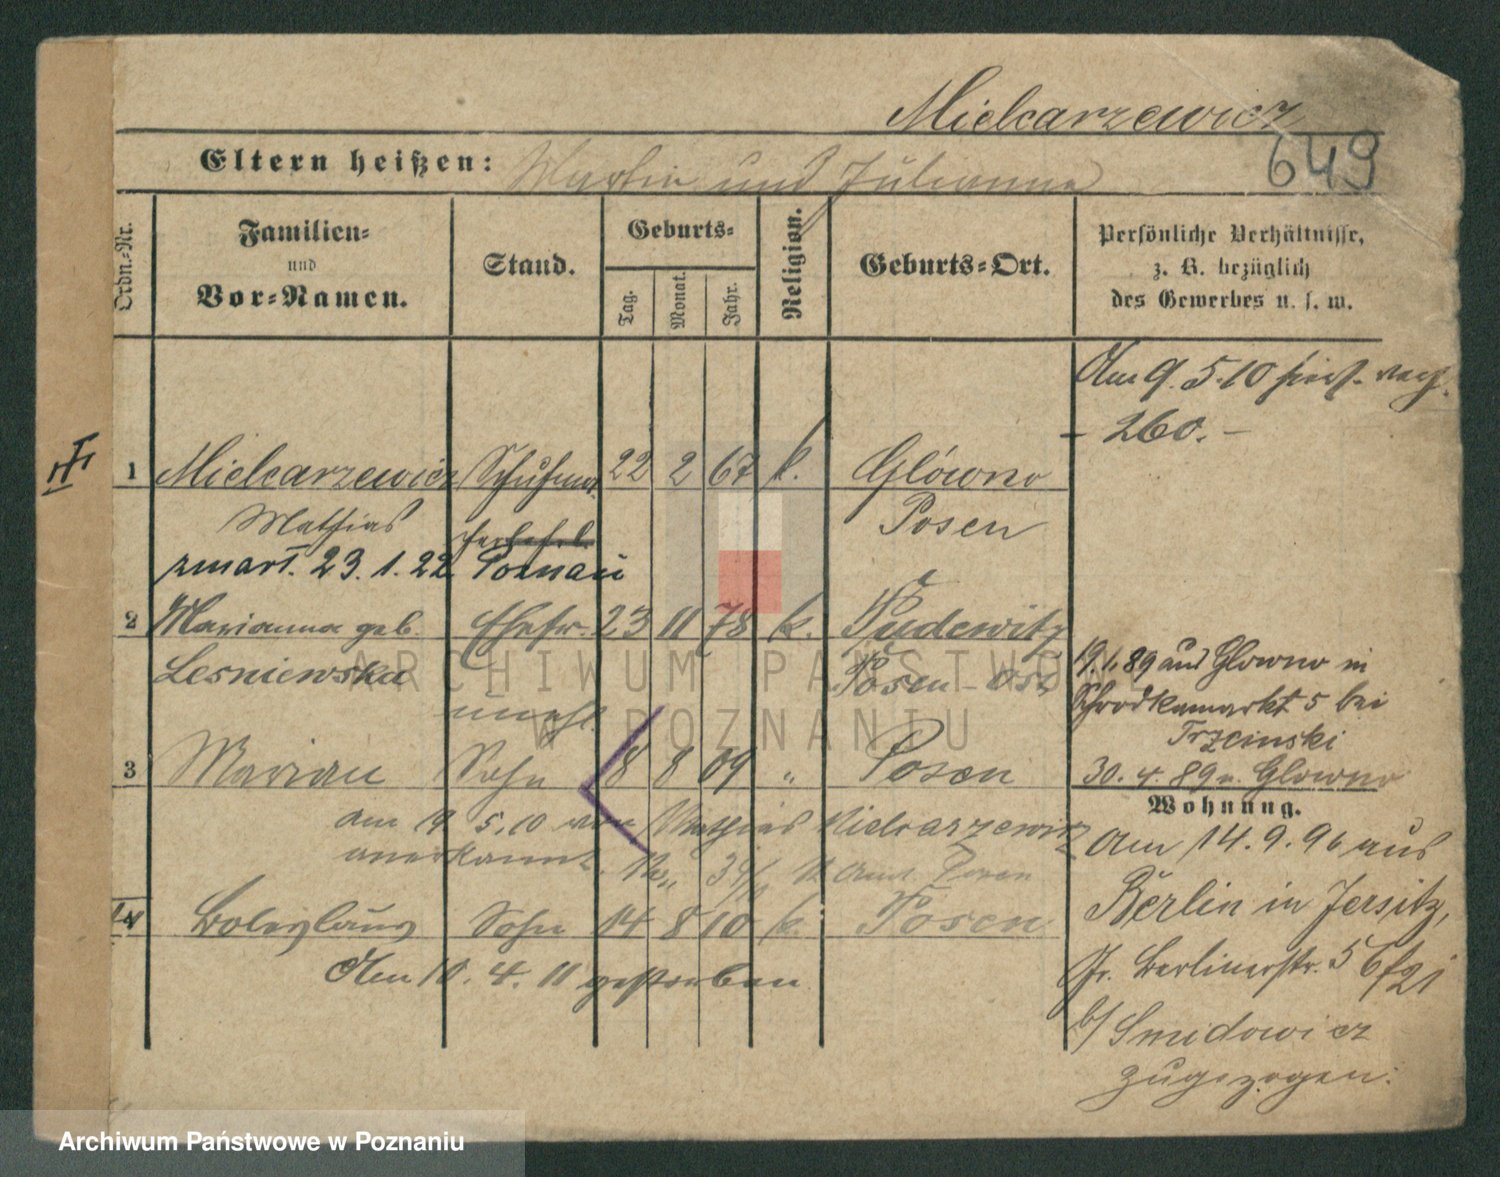 Mielcarzewicz
649
Eltern heißen: Martin und Julianna
Ordn.-Nr.
Familien-
und
Vor-Namen.
Stand.
Geburts-
Tag.
Monat.
Jahr.
Religion.
Geburts-Ort.
Persönliche Verhältnisse,
z. B. bezüglich
des Gewerbes u. s. w.
Am 9. 5. 10
- 260. -
1 Mielcarzewicz 22 2 67 k. Glówno
Mathias Posen
zmarł. 23. 1. 22 Poznań
2 Marianna geb. Ehefr. 23 11 78 k. Pudewitz
Lesniewska Posen-Ost
3 Marian Sohn 8 8 09 " Posen
am 9 5. 10 von Mathias Mielcarzewicz
anerkannt. Posen
4 Boleslaus Sohn 14 8 10 k. Posen
Am 10. 4. 11 gestorben
19. 1. 89 aus Glowno in
Schrodkamarkt 5 bei
Trzcinski
30. 4. 89 n. Glowno
Wohnung.
Am 14. 9. 96 aus
Berlin in Jersitz,
Gr. Berlinerstr. 56
b/ Smidowicz
zugezogen.
ARCHIWUM PAŃSTWOWE
W POZNANIU
Archiwum Państwowe w Poznaniu